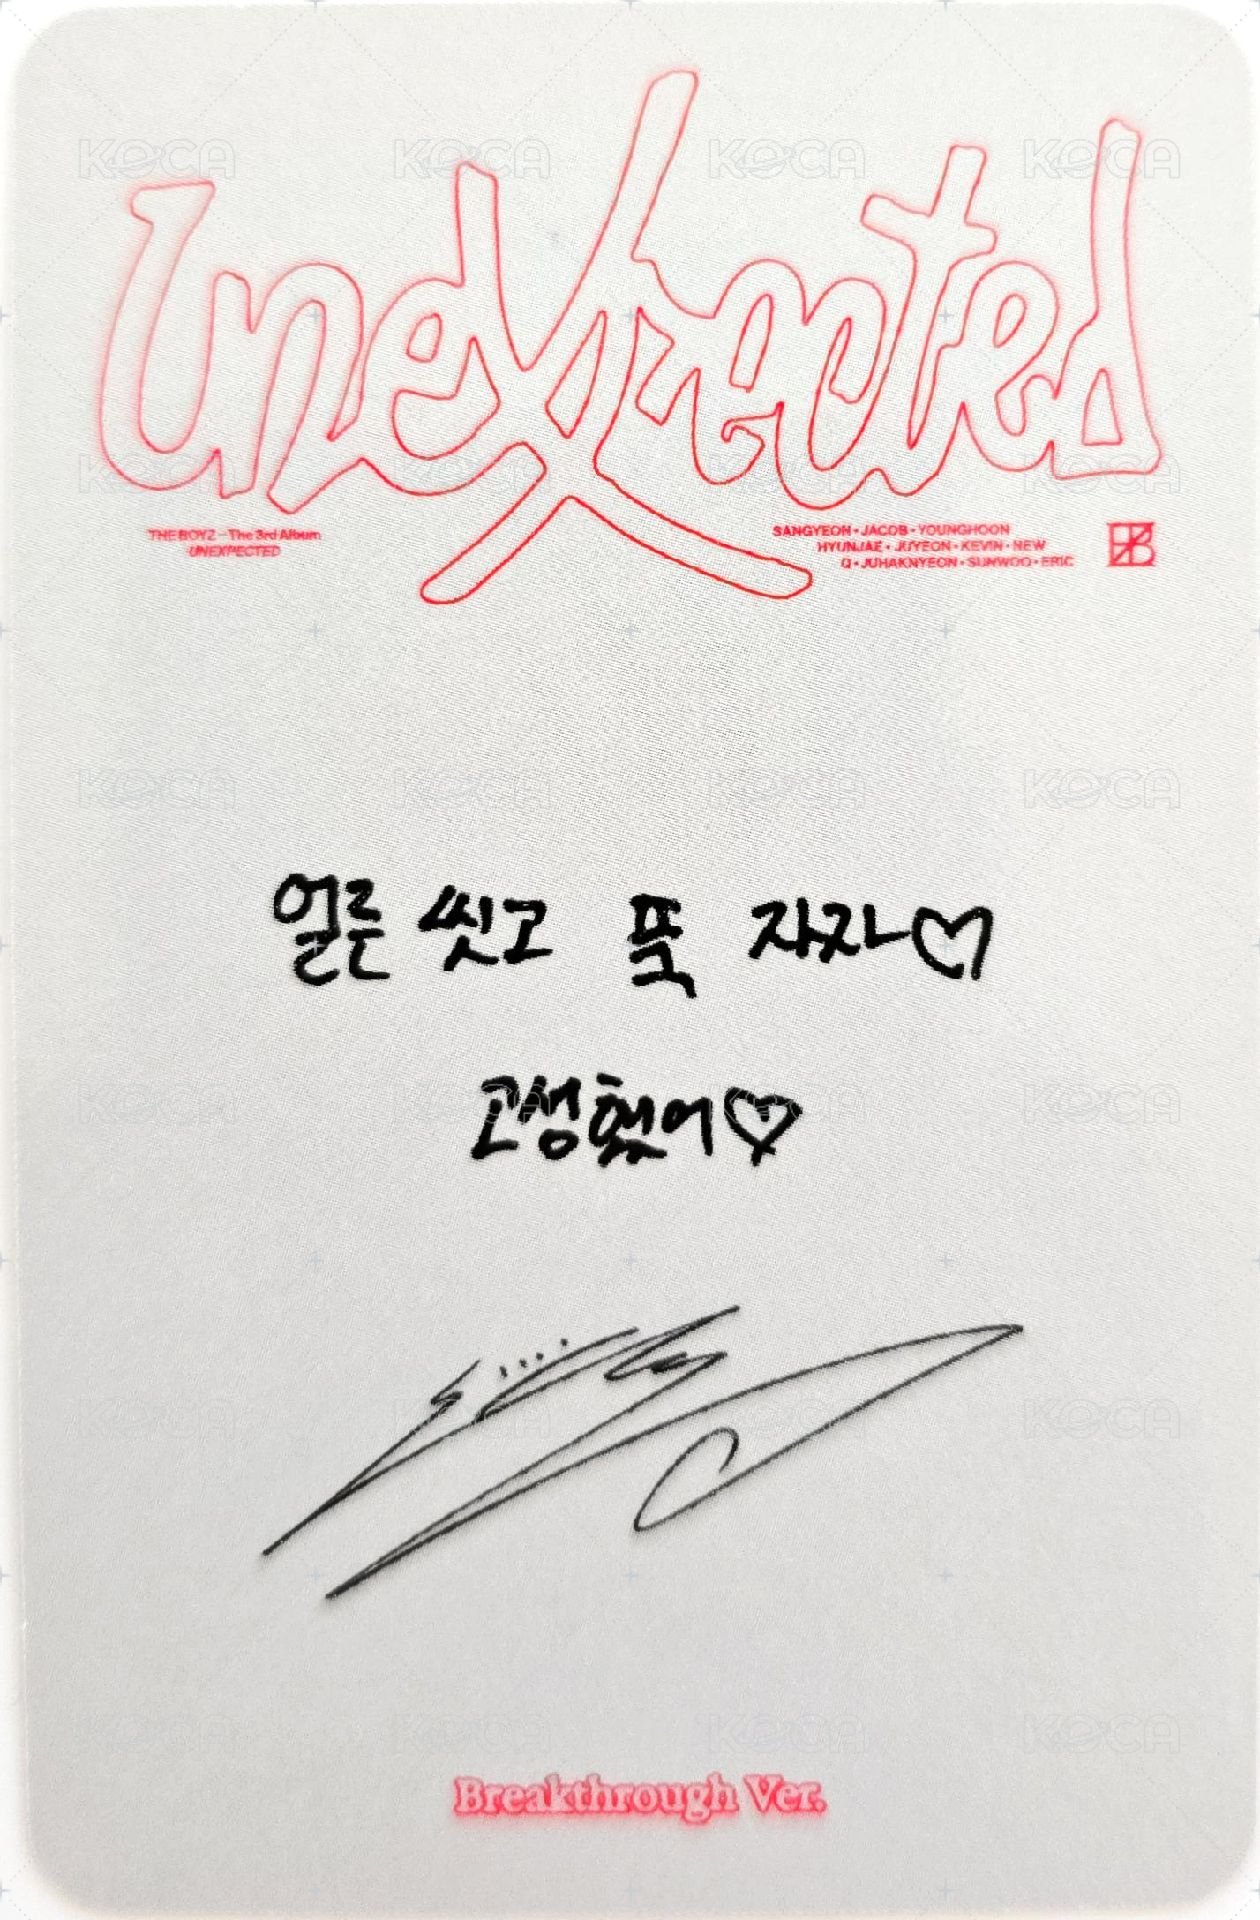 Unexpected
THE BOYZ - The 3rd Album
UNEXPECTED
SANGYEON • JACOB • YOUNGHOON
HYUNJAE • JUYEON • KEVIN • NEW
Q • JUHAKNYEON • SUNWOO • ERIC
얼른 씻고 푹 자자♡
고생했어♡
Breakthrough Ver.
KOCA